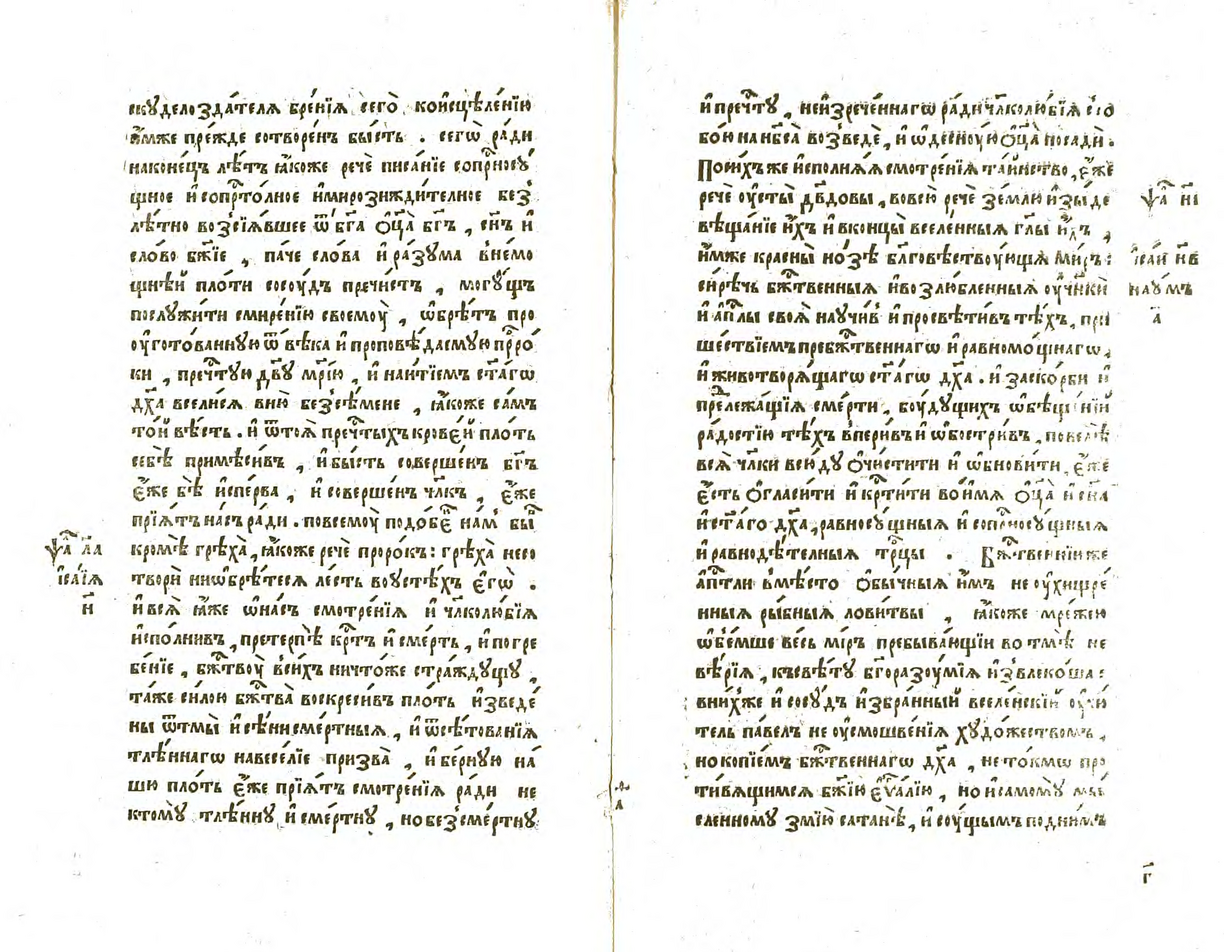 скꙋделоздáтелѧ бре́нїѧ сегò коисцѣле́нїю
и҆́мже пре́жде сотворе́нъ бы́сть . сегѡ̀ ра́ди
наконе́цъ лѣ́тъ ꙗ҆́коже речѐ писа́нїе сопрⷭ҇носꙋ́
щное и҆сопрⷭ҇то́лное и҆мирозижди́телное без̾
лѣ́тно возсїѧ́вшее ѿ бг҃а ѻ҆ц҃а̀ бг҃ъ , сн҃ъ и҆
сло́во бж҃їе , па́че сло́ва и҆ра́зꙋма в̾не́мо
щнѣ́й пло́ти сосꙋ́дъ пречи́стъ , могꙋ́щъ
послꙋжи́ти смире́нїю своемꙋ̀ , ѡ҆брѣ́тъ про
ᲂу҆гото́ваннꙋю ѿ вѣ́ка и҆ проповѣ́даемꙋю прⷪ҇ро́
ки , пречⷭ҇тꙋю дв҃ꙋ мр҃і́ю , и҆ наитїемъ ст҃а́гѡ
дх҃а вселисѧ внюю̀ без̾сѣ́мене , ꙗ҆́коже са́мъ
то́й вѣ́сть . и҆ ѿтоѧ̀ пречⷭ҇тыхъ крове́й пло́ть
себѣ̀ примѣси́въ , и҆бы́сть соверше́нъ бг҃ъ
є҆́же бѣ̀ и҆спе́рва , и҆ соверше́нъ чл҃къ , є҆́же
прїѧ́тъ на́съ ра́ди . повсемꙋ̀ подо́бенъ на́м̾ бы́
кромѣ̀ грѣха̀ , ꙗ҆́коже речѐ проро́къ : грѣха̀ несо
творѝ ниѡ҆брѣ́тесѧ ле́сть воᲂустѣ́хъ є҆гѡ̀ .
ѱаⷧ҇ ла
и҆са́їѧ
н҃
и҆всѧ̀ ꙗ҆́же ѡ҆на́съ смотре́нїѧ и҆ чл҃колю́бїѧ
и҆спо́лнивъ , претерпѣ̀ крⷭ҇тъ и҆ сме́рть , и҆ погре
бе́нїе , бжⷭ҇твꙋ̀ в̾си́хъ ничто́же стра́ждꙋщꙋ ,
та́же си́лою бжⷭ҇тва̀ воскреси́въ пло́ть и҆зведе́
ны ѿтмы̀ и҆ сѣ́ни сме́ртныѧ , и҆ ѿсѣ́тованїѧ
тлѣ́ннагѡ навесе́лїе призва̀ , и҆ бе́рнꙋю на́
шꙋ пло́ть є҆́же прїѧ́тъ смотре́нїѧ ра́ди не
ктомꙋ̀ тлѣ́ннꙋ , и҆ сме́ртнꙋ , но без̾сме́ртнꙋ
и҆ пречⷭ҇тꙋ , неи҆зрече́ннагѡ ра́ди чл҃колю́бїѧ с̾со
бо́ю на нб҃са̀ возведѐ , и҆ ѡ҆деснꙋ́ю ѻ҆ц҃а̀ посадѝ .
По си́хъ же и҆сполнѧ́ѧ смотре́нїѧ та́инство , є҆́же
речѐ ᲂу҆сты̀ дв҃довы , вовсю̀ речѐ зе́млю и҆зы́де
вѣща́нїе и҆́хъ и҆ вконцы̀ вселе́нныѧ гл҃ы и҆́хъ ,
ѱаⷧ҇ н҃і
и҆́мже красны̀ но́зѣ бл҃говѣствꙋ́ющѧ ми́ръ :
и҆са́и н҃в
си́рѣчь бжⷭ҇твенныѧ и҆возлю́бленныѧ ᲂу҆чн҃кѝ
наꙋ́мъ
и҆ а҆пⷭ҇лы своѧ̀ наꙋчи́в̾ и҆ просвѣти́въ тѣ́хъ , при
а҃
ше́ствїемъ пребжⷭ҇твеннагѡ и҆ равномо́щнагѡ ,
и҆ животворѧ́щагѡ ст҃а́гѡ дх҃а . и҆ за ско́рби и҆
прилежа́щїѧ сме́рти , бꙋ́дꙋщихъ ѡ҆бѣща́нїй
ра́достїю тѣ́хъ в̾перивъ и҆ ѡ҆бостри́въ , повелѣ̀
всѧ̀ чл҃ки всю́дꙋ ѻ҆чи́стити и҆ ѡ҆бнови́ти , є҆́же
є҆́сть ѻ҆гласи́ти и҆ крⷭ҇ти́ти во и҆́мѧ ѻ҆ц҃а̀ и҆ сн҃а
и҆ ст҃а́го дх҃а , равносꙋ́щныѧ и҆ сопрⷭ҇носꙋ́щныѧ
и҆ равнодѣ́телныѧ трⷪ҇цы . Бжⷭ҇твеннїи же
а҆пⷭ҇тли в̾мѣ́сто ѻ҆бы́чныѧ и҆́мъ не ᲂу҆хищре́
нныѧ ры́бныѧ лови́твы , ꙗ҆́коже мре́жею
ѡ҆б̾е́мше ве́сь мі́ръ пребыва́ющїи во тмѣ̀ не
вѣ́рїѧ , къ свѣ́тꙋ бг҃оразꙋ́мїѧ и҆звлеко́ша :
вни́хже и҆ сосꙋ́дъ и҆збра́нный вселе́нскїй ᲂу҆чи
тель па́велъ не ᲂу҆смошве́нїѧ хꙋдо́жествомъ ,
но копїе́мъ бжⷭ҇твеннагѡ дх҃а , не то́кмѡ про
ти́вѧщимсѧ бж҃їю є҆ѵⷢ҇а́лїю , но и҆ самомꙋ̀ мы́
сленномꙋ змі́ю сатанѣ̀ , и҆ сꙋ́щымъ под ни́мъ
г҃